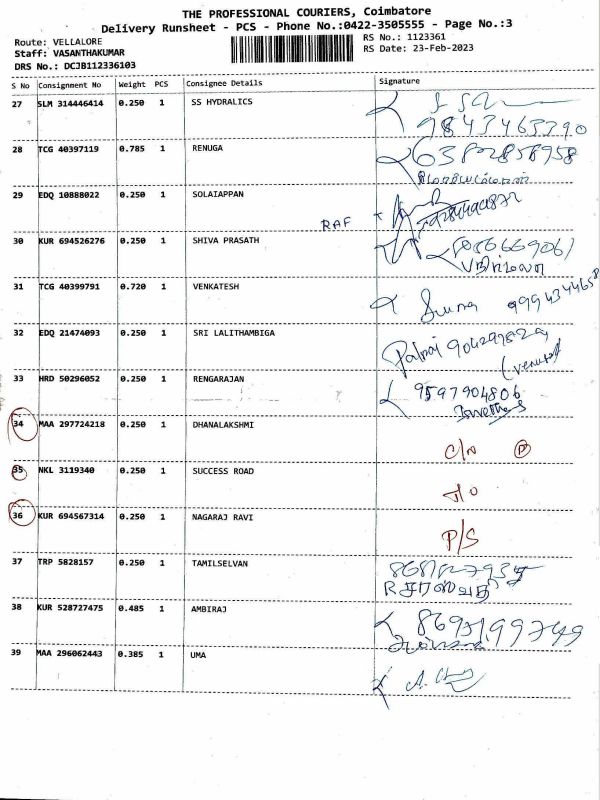 THE PROFESSIONAL COURIERS, Coimbatore
Delivery Runsheet - PCS - Phone No.:0422-3505555 - Page No.:3
Route: VELLALORE
Staff: VASANTHAKUMAR
DRS No.: DCJB112336103
RS No.: 1123361
RS Date: 23-Feb-2023
S No Consignment No Weight PCS Consignee Details Signature
27 SLM 314446414 0.250 1 SS HYDRALICS
9843463390
28 TCG 40397119 0.785 1 RENUGA
6382858958
29 EDQ 10888022 0.250 1 SOLAIAPPAN
RAF
30 KUR 694526276 0.250 1 SHIVA PRASATH
8056669061
31 TCG 40399791 0.720 1 VENKATESH
9994344658
32 EDQ 21474093 0.250 1 SRI LALITHAMBIGA
33 HRD 50296052 0.250 1 RENGARAJAN
9597904806
34 MAA 297724218 0.250 1 DHANALAKSHMI
C/N
35 NKL 3119340 0.250 1 SUCCESS ROAD
36 KUR 694567314 0.250 1 NAGARAJ RAVI
P/S
37 TRP 5828157 0.250 1 TAMILSELVAN
38 KUR 528727475 0.485 1 AMBIRAJ
39 MAA 296062443 0.385 1 UMA